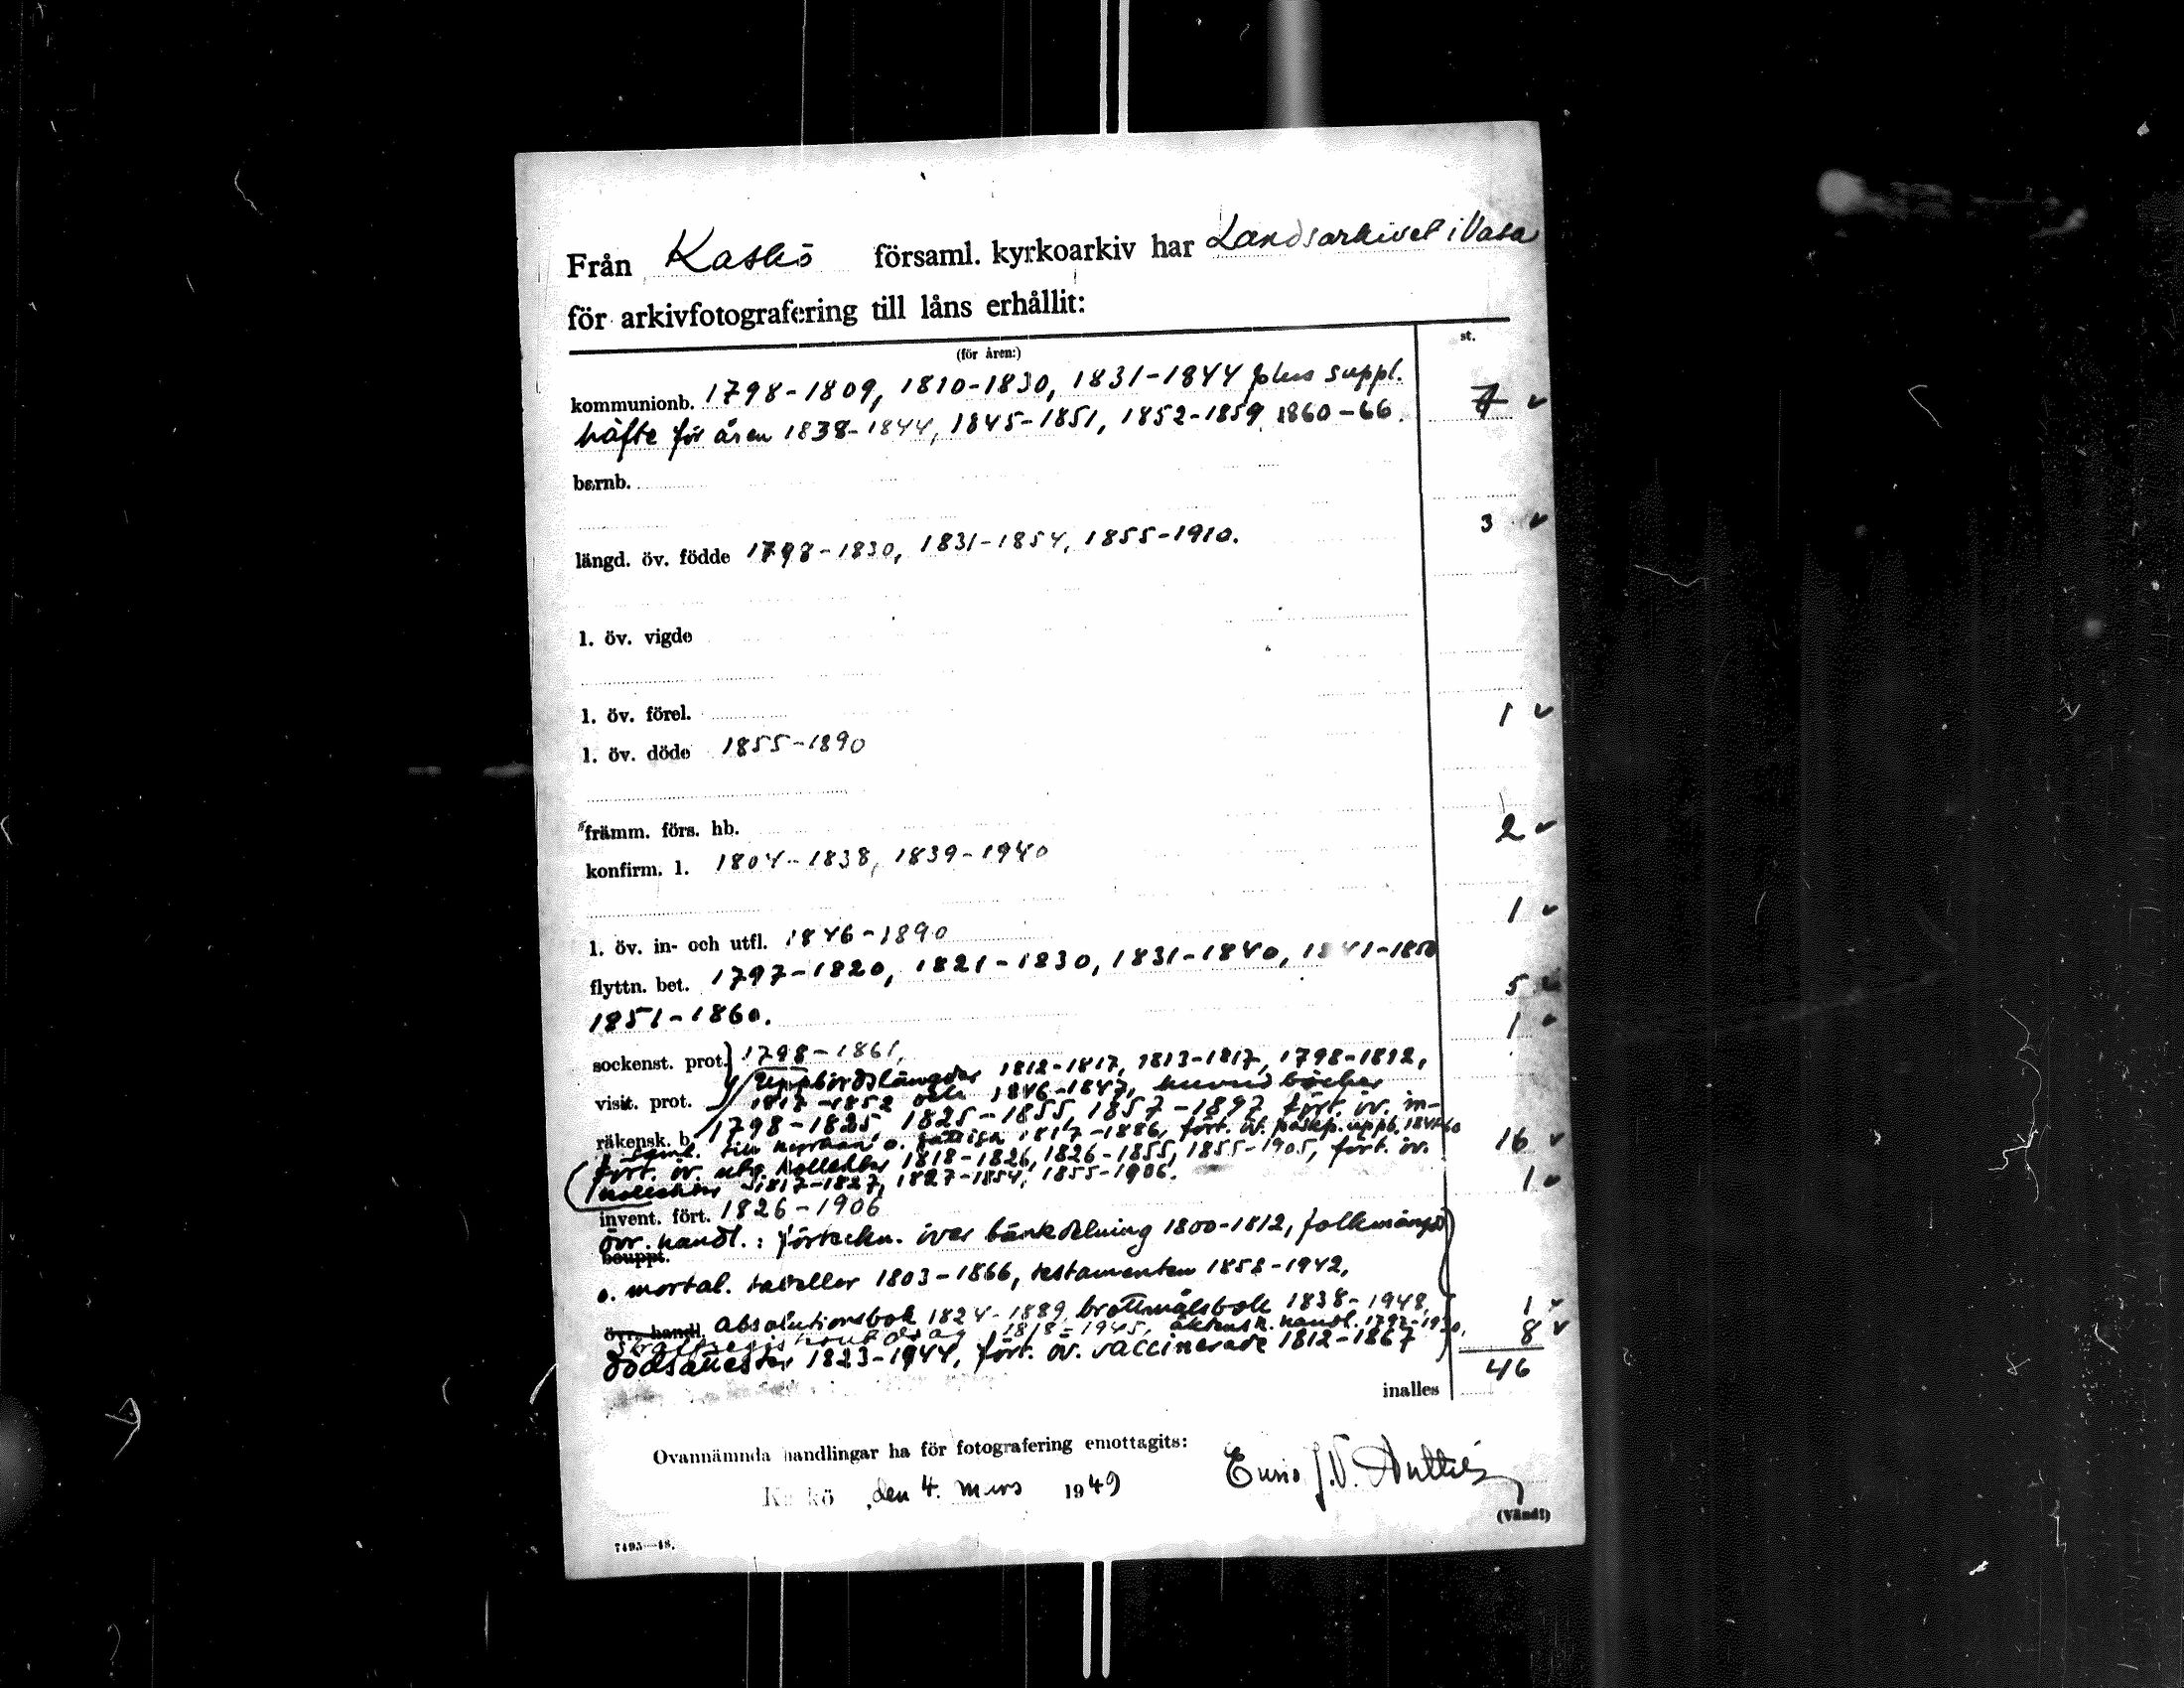 Från Kaskö församl. kyrkoarkiv har Landsarkivet i Vasa
för arkivfotografering till låns erhållit:
(för åren:) st.
kommunionb. 1798-1809, 1810-1830, 1831-1844 plus suppl.
häfte för åren 1838-1844, 1845-1851, 1852-1859, 1860-66. 7 ✓
barnb.
3 ✓
längd. öv. födde 1798-1830, 1831-1854, 1855-1910.
l. öv. vigde
l. öv. förel. 1 ✓
l. öv. döde 1855-1890
främm. förs. hb. 2 ✓
konfirm. l. 1804-1838, 1839-1940
1 ✓
l. öv. in- och utfl. 1846-1890
flyttn. bet. 1797-1820, 1821-1830, 1831-1840, 1841-1850 5 ✓
1851-1860. 1 ✓
sockenst. prot. 1798-1861,
Uppbördslängder 1812-1817, 1813-1817, 1798-1812,
visit. prot. 1817-1852 och 1846-1847, huvudböcker
räkensk. b. 1798-1825, 1825-1855, 1857-1897, fört. öv. in-
till kyrkan o. fattiga 1817-1886, fört. öv. 16 ✓
fört. öv. kollekter 1818-1826, 1826-1855, 1855-1905, fört. öv.
kollekter 1817-1827, 1827-1854, 1855-1906. 1 ✓
invent. fört. 1826-1906
övr. handl.: förteckn. över bänkdelning 1800-1812, folkmängd
bouppt.
o. mortal. tabeller 1803-1866, testamenten 1858-1942,
övr. handl. Absolutionsbok 1824-1889, brottmålsbok 1838-1948, 1 ✓
1818-1945, äktensk. handl. 8 ✓
dödsattester 1823-1944, fört. öv. vaccinerade 1812-1867
46
inalles
Ovannämnda handlingar ha för fotografering emottagits:
Kaskö, den 4. mars 1949
(Vänd!)
7495—48.